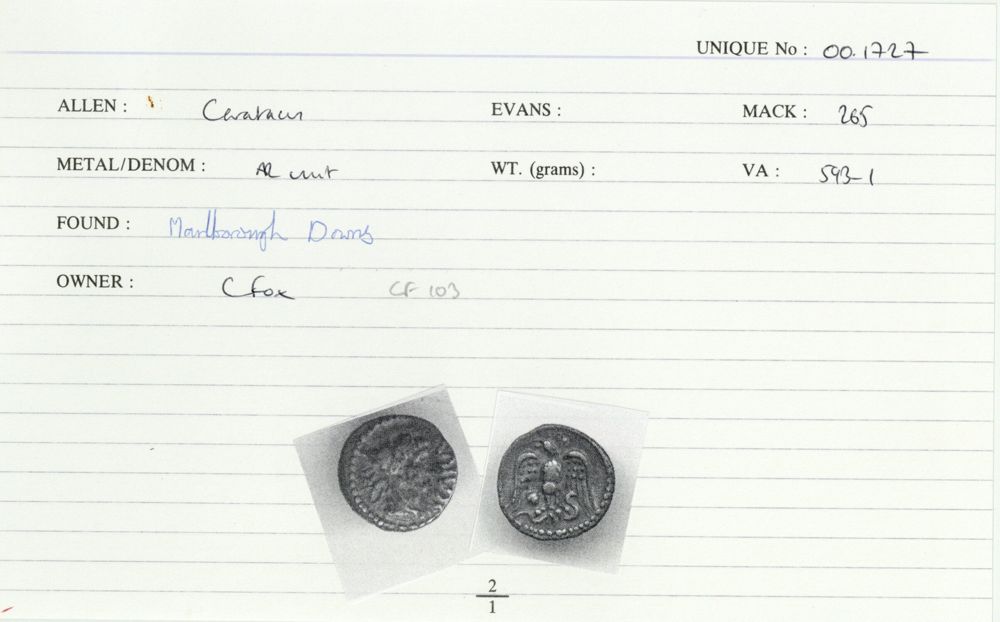 UNIQUE No : 00.1727
ALLEN : Caratacus EVANS : MACK : 265
METAL/DENOM : AR unit WT. (grams) : VA : 593-1
FOUND : Marlborough Downs
OWNER : C Fox CF 103
2
1